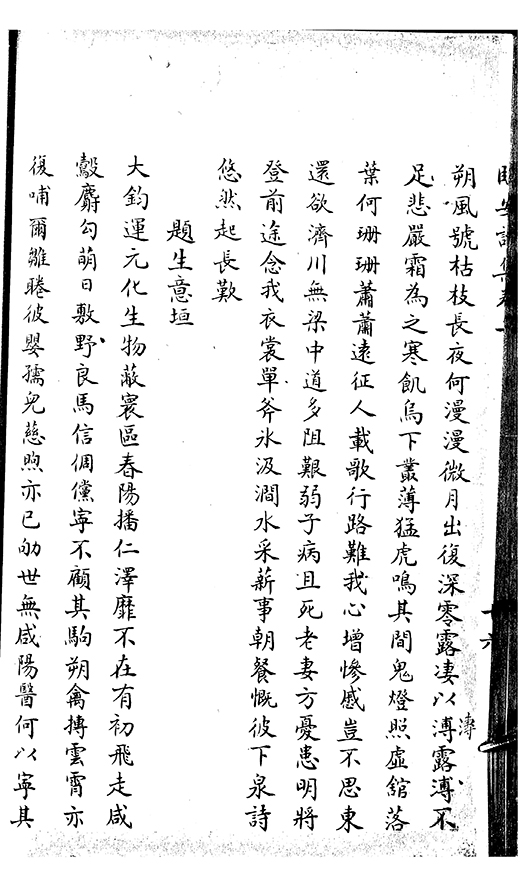 朔風號枯枝長夜何漫漫微月出復深零露淒以溥露溥不
漙
足悲嚴霜為之寒飢烏下叢薄猛虎鳴其間鬼燈照虛舘落
葉何珊珊蕭蕭遠征人載歌行路難我心增慘慼豈不思東
還欲濟川無梁中道多阻艱弱子病且死老妻方憂患明將
登前途念我衣裳單斧氷汲澗水采薪事朝餐慨彼下泉詩
悠然起長歎
題生意垣
大鈞運元化生物蔽寰區春陽播仁澤靡不在有初飛走咸
鷇麛勾萌日敷野良馬信倜儻寧不顧其駒朔禽摶雲霄亦
復哺爾雛睠彼嬰孺兒慈煦亦已劬世無咸陽醫何以寧其